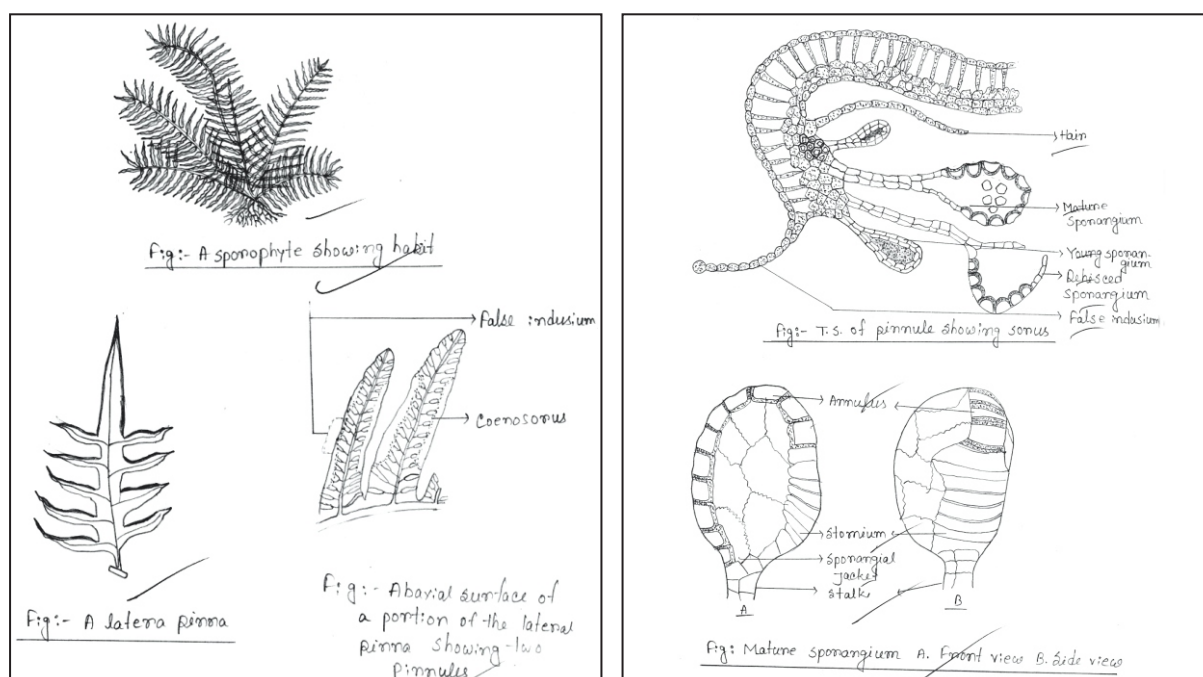 Fig:- A sporophyte showing habit
False indusium
Coenosorus
Fig:- A latera pinna
Fig:- Abaxial surface of
a portion of the lateral
pinna showing two
pinnules
Hair
Mature
Sporangium
Young sporan-
gium
Dehisced
Sporangium
False indusium
Fig:- T.S. of pinnule showing sorus
Annulus
Stomium
Sporangial
jacket
Stalk
A
B
Fig: Mature sporangium A. Front view B. Side view